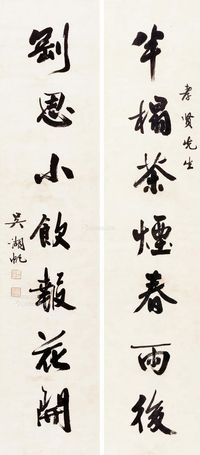 半榻茶煙春雨後
孝賢先生
劇思小飲報花開
吳湖帆